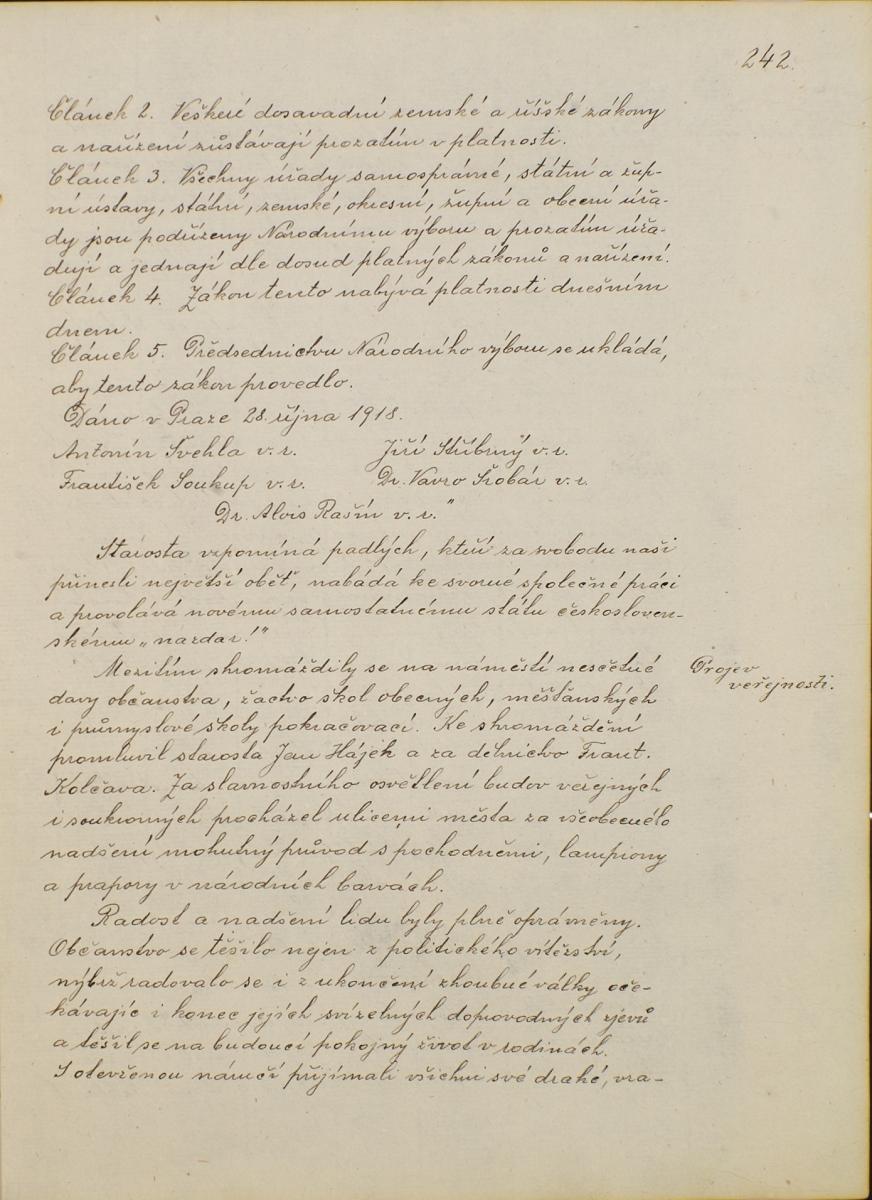 242.
Článek 2. Veškeré dosavadní zemské a říšské zákony
a nařízení zůstávají prozatím v platnosti.
Článek 3. Všechny úřady samosprávné, státní a žup-
ní ústavy, státní, zemské, okresní, župní a obecní úřa-
dy jsou podřízeny Národnímu výboru a prozatím úřa-
dují a jednají dle dosud platných zákonů a nařízení.
Článek 4. Zákon tento nabývá platnosti dnešním
dnem.
Článek 5. Předsednictvu Národního výboru se ukládá,
aby tento zákon provedlo.
Dáno v Praze 28. října 1918.
Antonín Švehla v. r. Jiří Stříbrný v. r.
František Soukup v. r. Dr. Vavro Šrobár v. r.
Dr. Alois Rašín v. r."
Starosta vzpomíná padlých, kteří za svobodu naši
přinesli největší oběť, nabádá ke svorné společné práci
a provolává novému samostatnému státu českosloven-
skému „nazdar!"
Mezitím shromáždily se na náměstí nesčetné
Projev
veřejnosti.
davy občanstva, žactvo škol obecných, měšťanských
i průmyslové školy pokračovací. Ke shromáždění
promluvil starosta Jan Hájek a za dělnictvo Frant.
Kolčava. Za slavnostního osvětlení budov veřejných
i soukromých procházel ulicemi města za všeobecného
nadšení mohutný průvod s pochodněmi, lampiony
a prapory v národních barvách.
Radost a nadšení lidu byly plně oprávněny.
Občanstvo se těšilo nejen z politického vítězství,
nýbrž radovalo se i z ukončení zhoubné války oče-
kávajíc i konec jejích svízelných doprovodných zjevů
a těšil se na budoucí pokojný život v rodinách.
S otevřenou náručí přijímali všichni své drahé, vra-